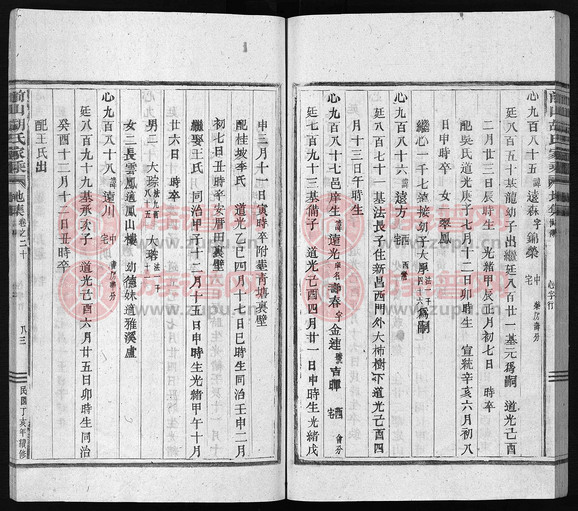 心九百八十五 諱遠森 字錦榮
廷八百八十五基龍幼子出繼廷八百廿一基元爲嗣 道光己酉
二月廿三日辰時生 光緒甲辰正月初七日 時卒
配吳氏道光庚子七月十二日卯時生 宣統辛亥六月初八
日 時卒 女 翠鳳
繼心一千七 接幼子大學 爲嗣
心九百八十六 諱遠方 中 宅
廷八百七十一基法長子住新昌西門外大柿樹下道光己酉四
月三十日午時生
心九百八十七邑庠生 諱遠光 壽春 字金連 號吉暉
廷七百九十三基備子 道光己酉四月廿一日申時生光緒戊
申三月十一日寅時卒附墓青塘裏壁
配桂坡李氏 道光乙巳四月十七日巳時生同治壬申二月
初七日丑時卒 安厝田裏壁
繼娶王氏 同治 年十二月十一日申時生光緒甲午十月
廿六日 時卒
男二 大 大
女二長雲鳳適鳳山樓 幼德妹適雅溪盧
心九百八十八 諱遠川 中 宅
廷八百九十九基承次子 道光己酉六月廿五日卯時生同治
癸酉十二月十二日丑時卒
配王氏出
前山胡氏家乘
地集 卷之二十
八三
民國丁亥年續修
族譜網
www.zupu.cn